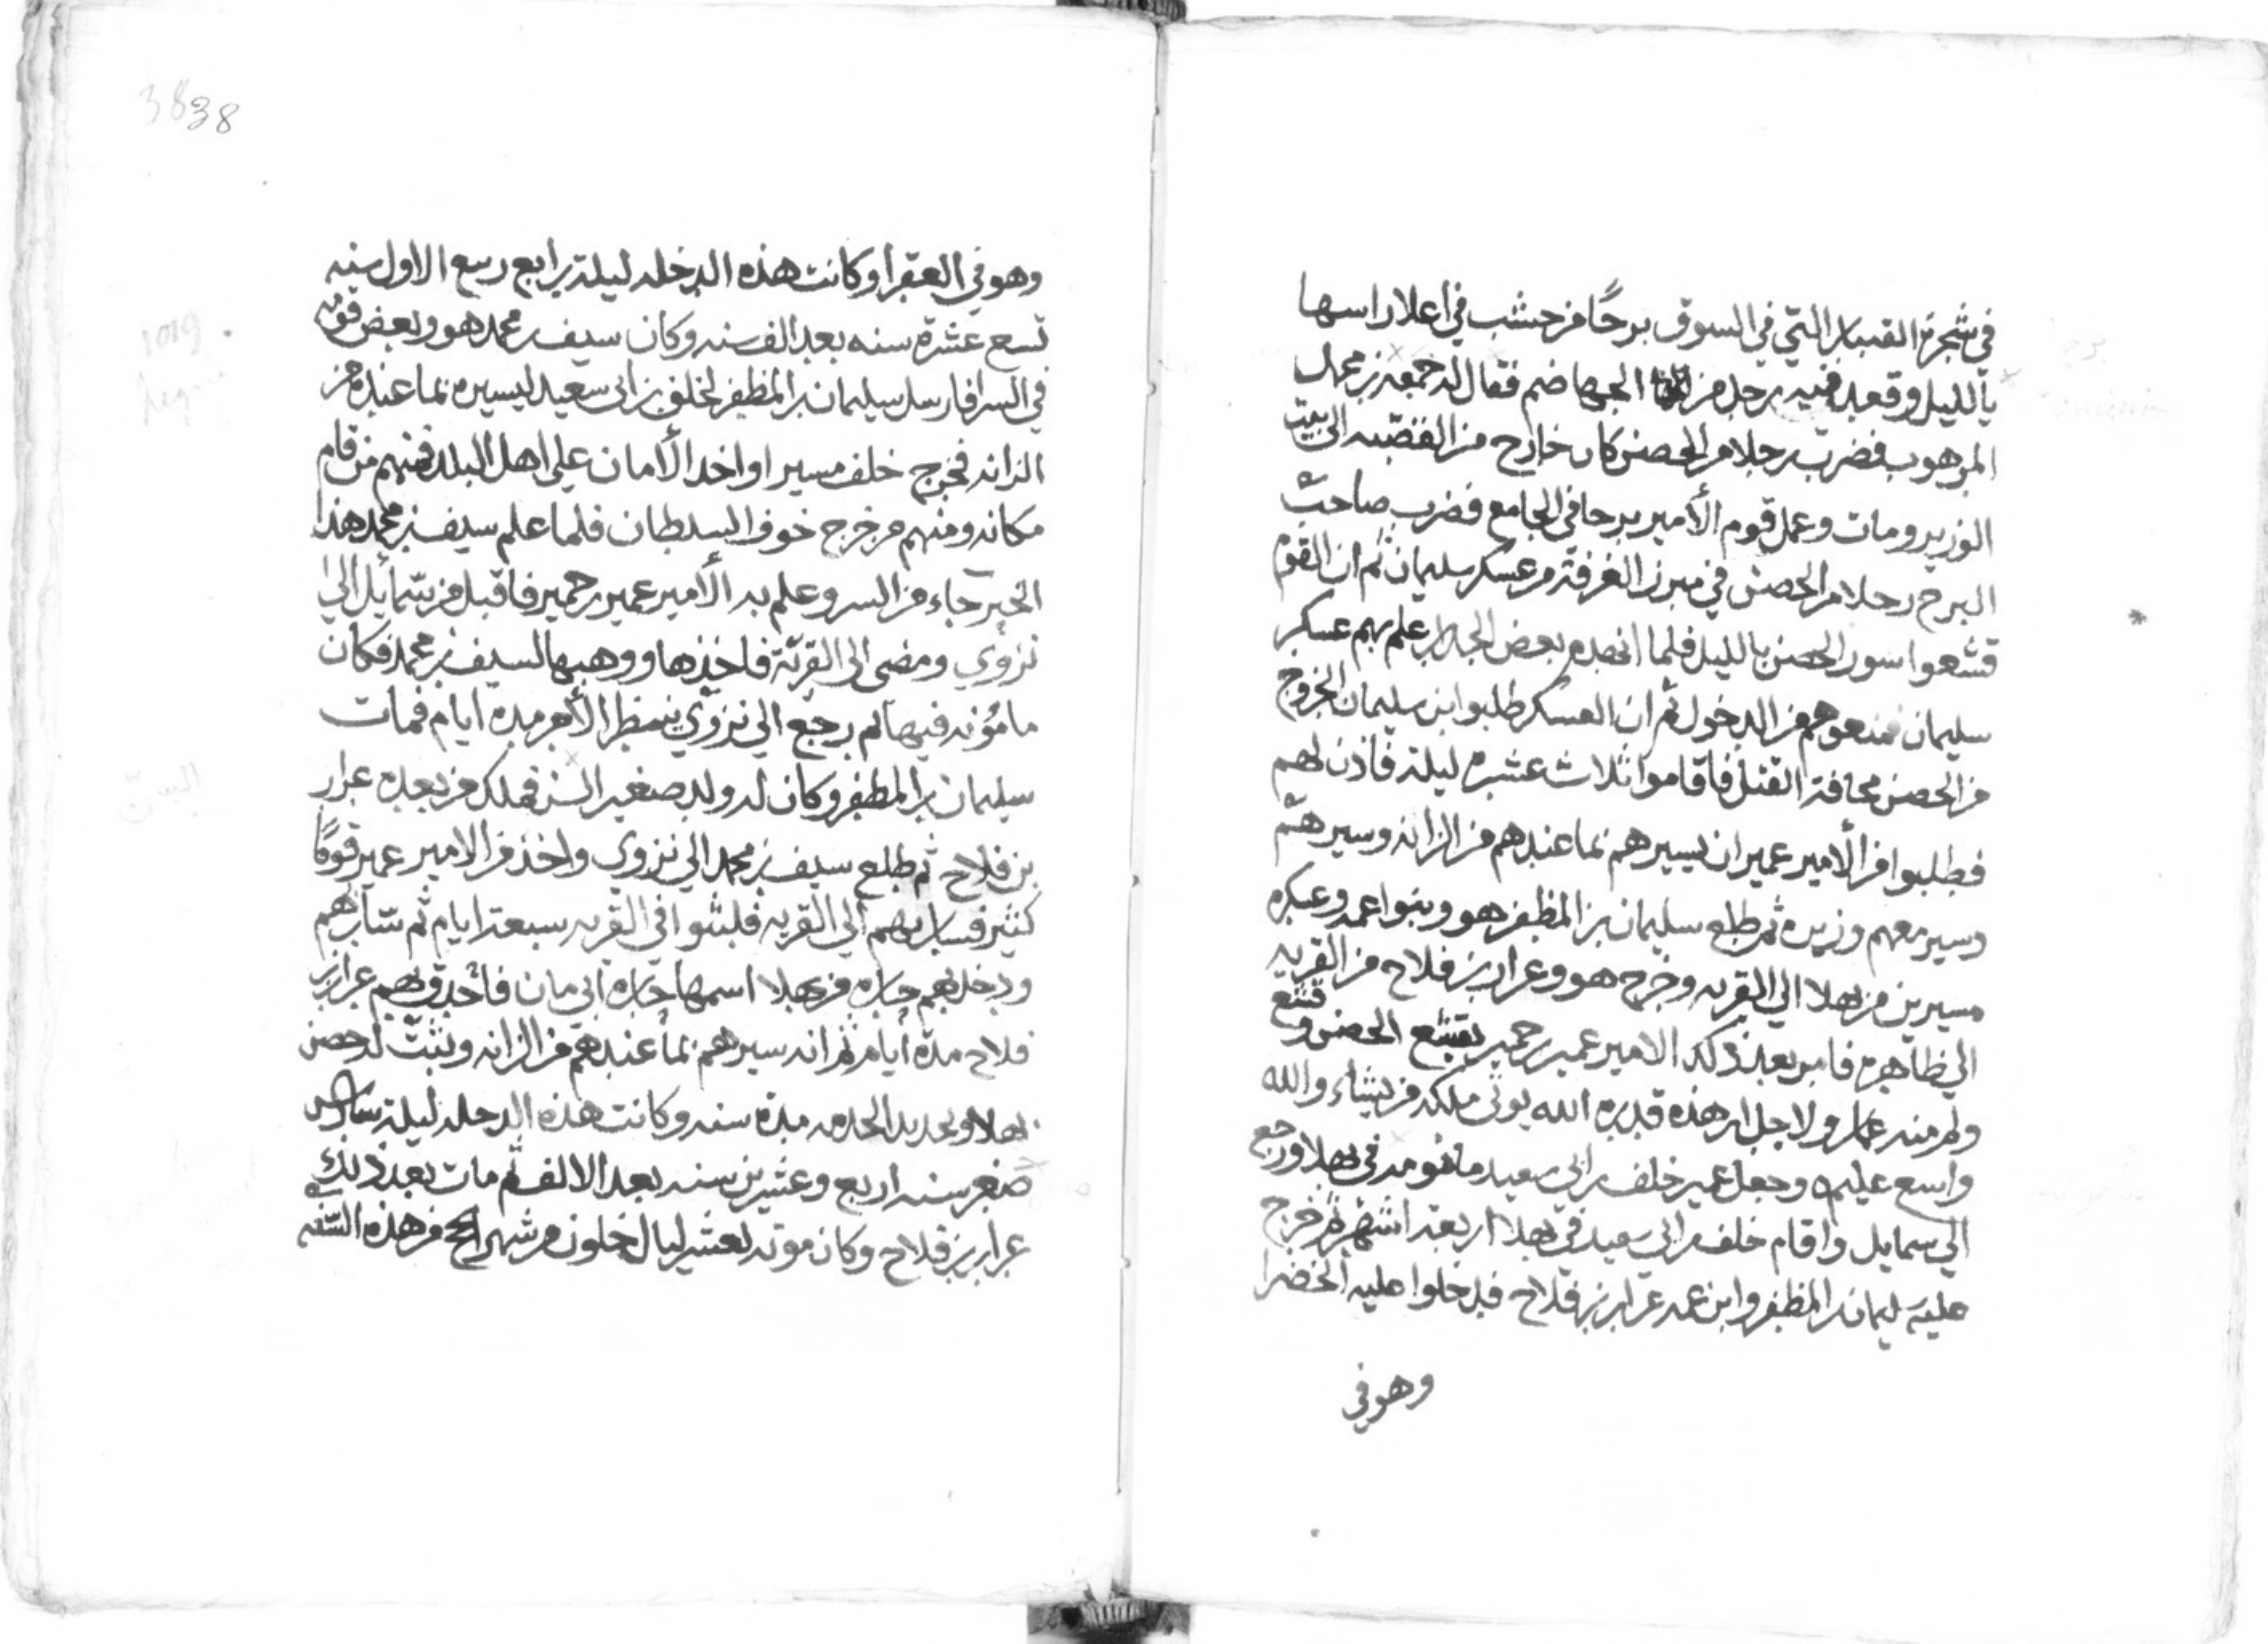 في شجرة القببار التي في السوق برجًا من خشب في اعلا راسها
بالليل وقعد فيه رجل من الجهاضم فقال له جمعه بن محمد
المرهوب فضرب رجلا من الحصن كان خارج من القصبه الى بيت
الوزير ومات وعمل قوم الأمير برجا في الجامع فضرب صاحب
البرج رجلا من الحصن في مبرز الغرفة من عسكر سليمان ثم ان القوم
قشعوا سور الحصن بالليل فلما انهدم بعض الجدار علم بهم عسكر
سليمان فمنعوهم من الدخول ثم ان العسكر طلبوا ابن سليمان الخروج
من الحصن مخافة القتل فاقاموا ثلاث عشره ليلة فاذن لهم
فطلبوا من الأمير عمير ان يسيرهم بما عندهم من الزانه وسيرهم
وسير معهم وزيره ثم طلع سليمان بن المظفر هو وبنوا عمه وعسكره
مسيرين من بهلا الي القريه وخرج هو وعرار بن فلاح من القريه
الي ظاهره فامر بعد ذلك الامير عمير بن حمير بقشع الحصن وقشع
ولم منه عمار ولا جدار هذه قدره الله يوتي ملكه من يشاء والله
واسع عليم وجعل عمير خلف بن ابي سعيد مأمونه في بهلا ورجع
الي سمايل واقام خلف بن ابي سعيد في بهلا اربعة اشهر ثم خرج
عليه سليمان بن المظفر وابن عمه عرار بن فلاح فدخلوا عليه الخضرا
وهو في
3838
وهو في العقر أو كانت هذه الدخله ليلة رابع ربيع الاول سنه
تسع عشرة سنه بعد الف سنه وكان سيف بن محمد هو وبعض قومه
في السر فارسل سليمان بن المظفر لخلف بن ابي سعيد ليسيره بما عنده من
الزانه فخرج خلف مسيرا واخد الأمان علي اهل البلد فمنهم من قام
مكانه ومنهم من خرج خوف السلطان فلما علم سيف بن محمد هذا
الخبر جاء من السر وعلم به الأمير عمير بن حمير فاقبل من سمايل الي
نزوي ومضى الى القرية فاخذها ووهبها لسيف بن محمد فكان
مامونه فيها ثم رجع الي نزوي ينتظر الأمر مدة ايام فمات
سليمان بن المظفر وكان له ولد صغير السن فملك من بعده عرار
بن فلاح ثم طلع سيف بن محمد الي نزوي واخذ من الامير عمير قومًا
كثير فسار بهم الي القريه فلبثوا في القريه سبعة ايام ثم سار بهم
ودخل بهم حاره من بهلا اسمها حارة ابي مان فاحدق بهم عرار بن
فلاح مدة أيام ثم انه سيرهم بما عندهم من الزانه وثبت له حصن
بهلا مدة سنه وكانت هذه الدخله ليلة سادس
صفر سنه اربع وعشرين سنه بعد الالف ثم مات بعد ذلك
عرار بن فلاح وكان موته لعشر ليال خلون من شهر الحج من هذه السنه
1019